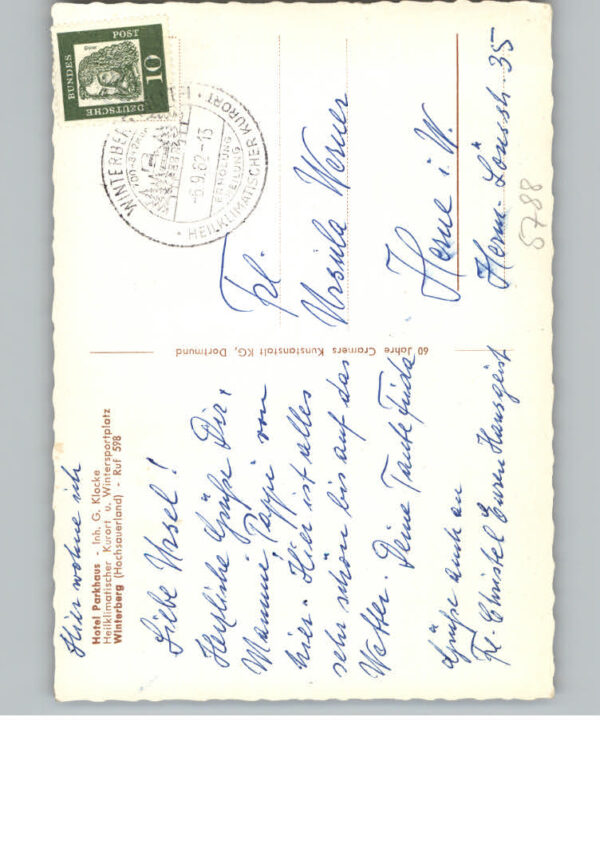 Hier wohne ich
Hotel Parkhaus - Inh. G. Klacke
Heilklimatischer Kurort u. Wintersportplatz
Winterberg (Hochsauerland) - Ruf 598
Liebe Ursel!
Herzliche Grüße Dir,
Mammi, Pappi von
hier. Hier ist alles
sehr schön bis auf das
Wetter. Deine Tante Frida
Grüße auch an
Frl. Christel Euren Hausgeist
60 Jahre Cramers Kunstanstalt KG, Dortmund
DEUTSCHE
BUNDES
POST
10
WINTERBE
-6.9.62-15
ERHOLUNG
HEILUNG
HEILKLIMATISCHER KURORT
Frl.
Ursula Werner
Herne i. W.
Herm.-Lönsstr. 35
5788